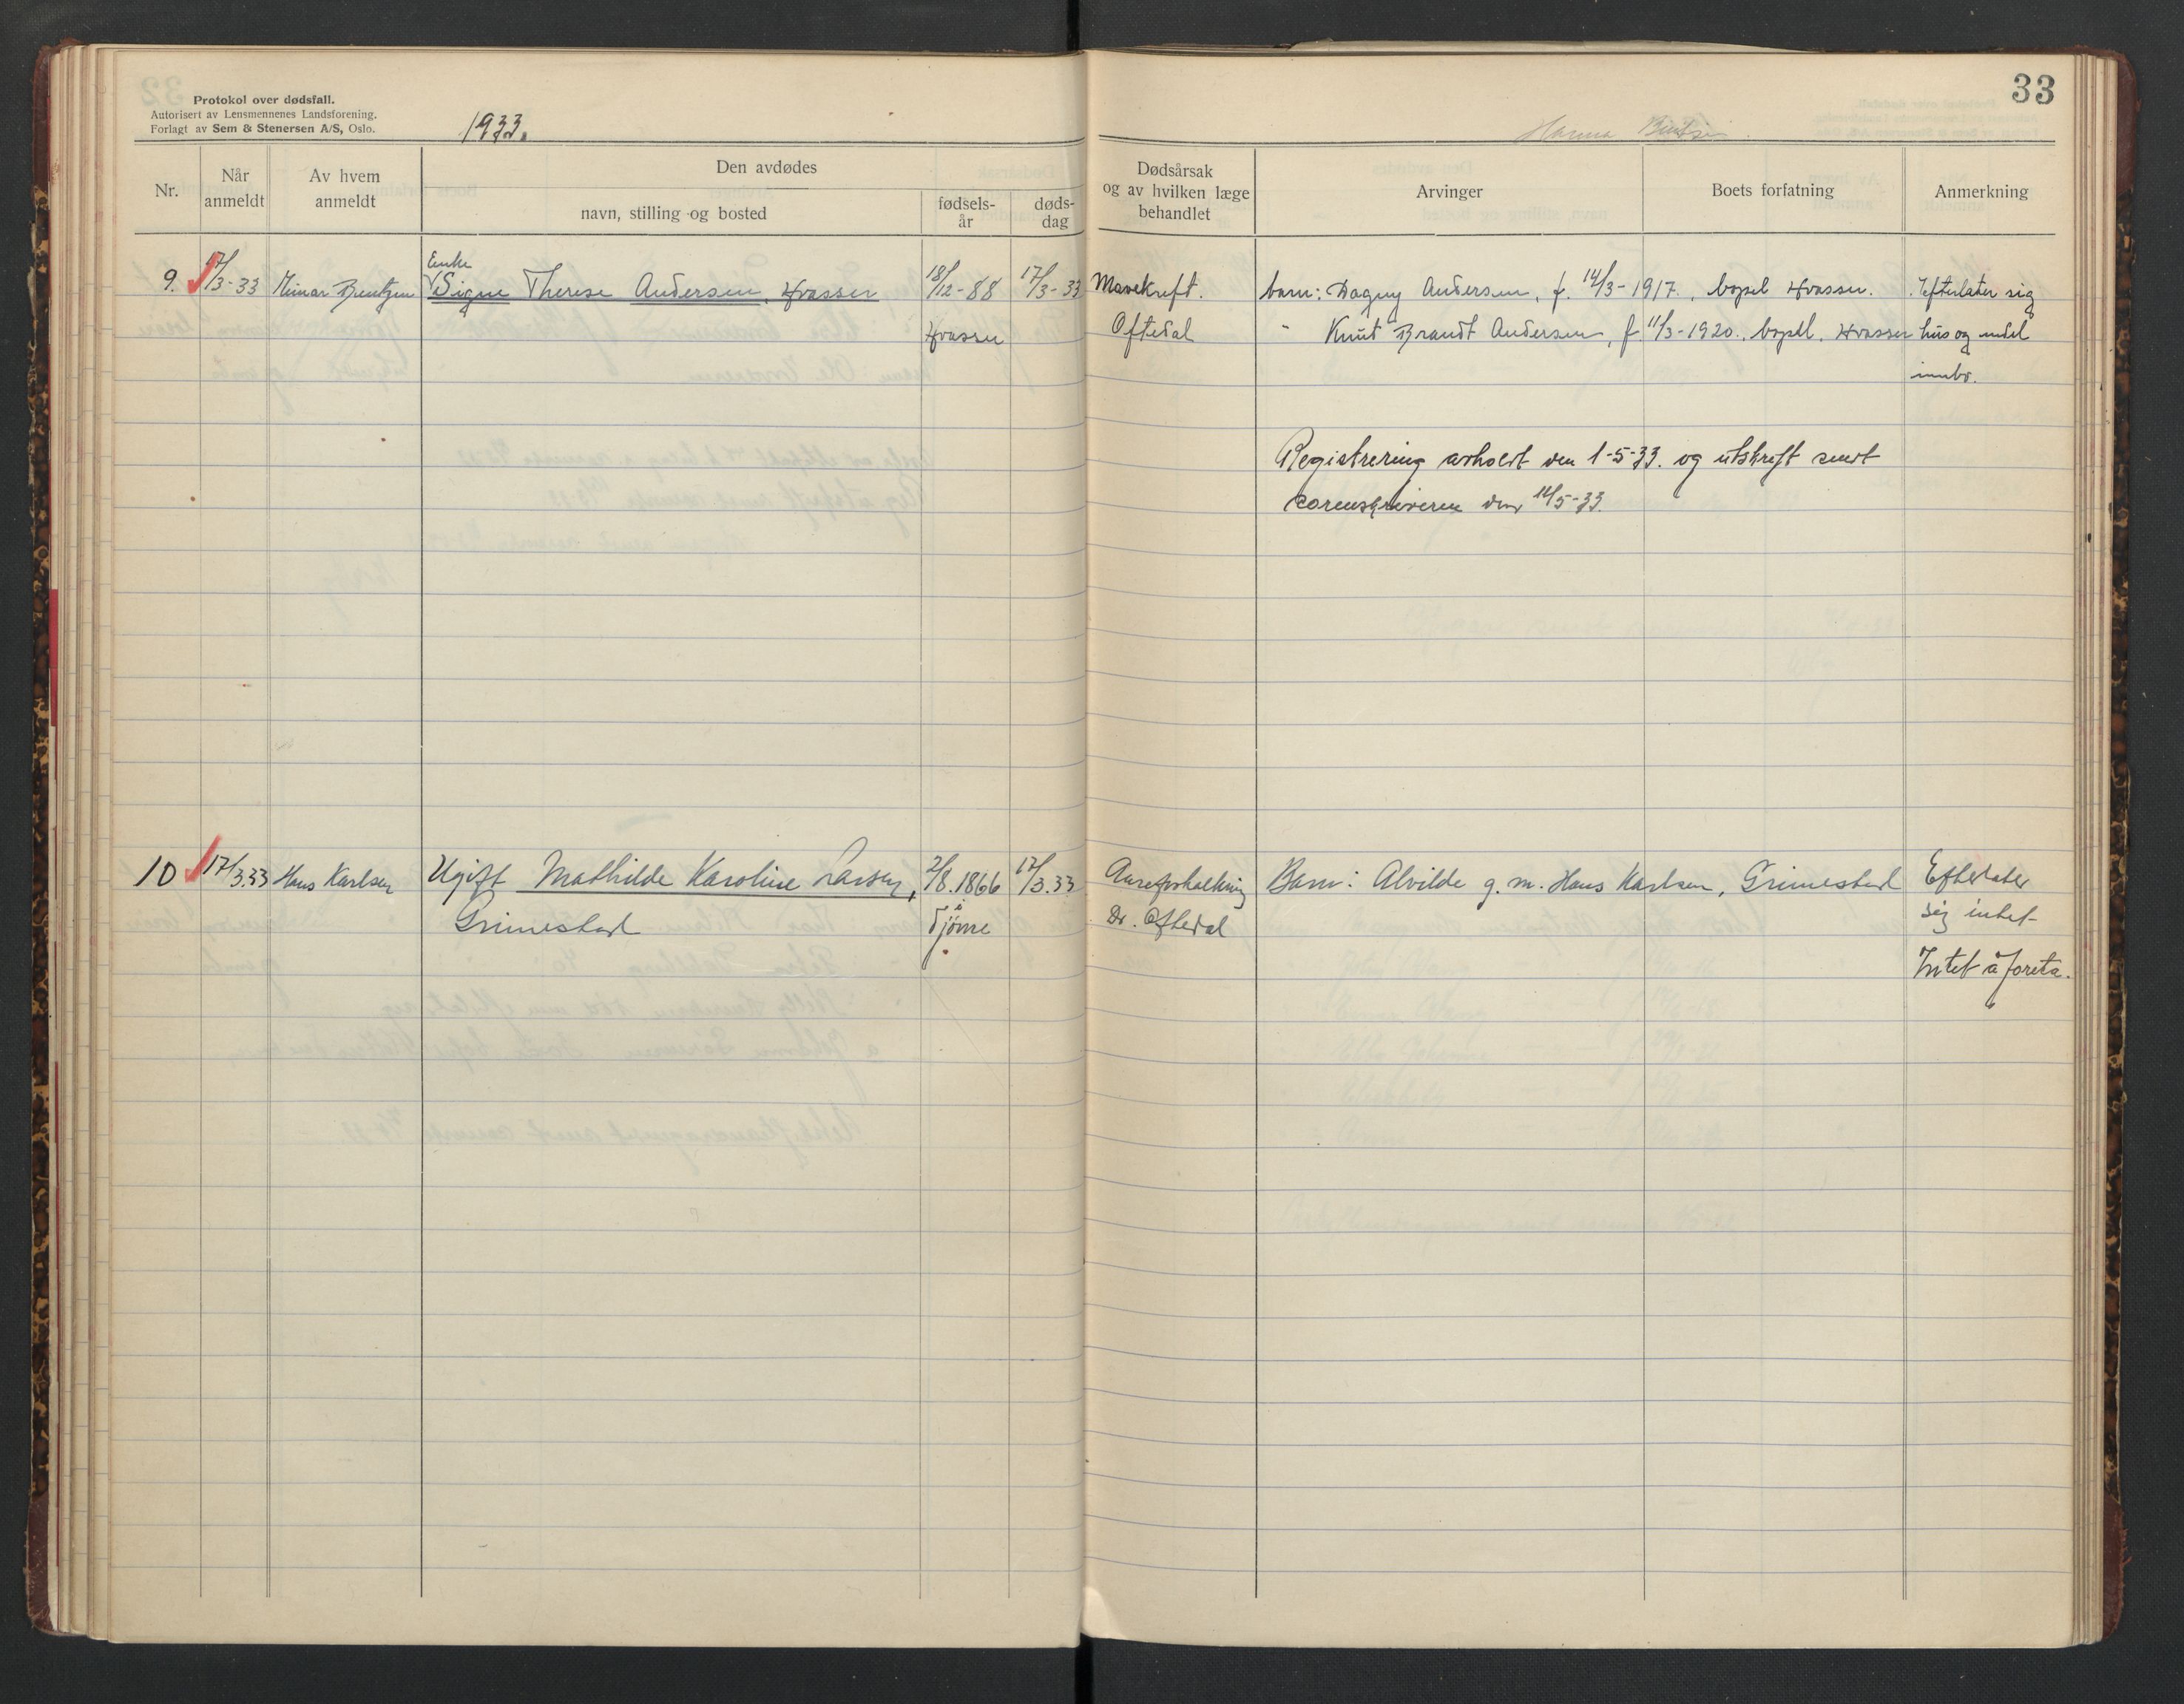 33
Protokol over dødsfall.
Autorisert av Lensmennenes Landsforening.
Forlagt av Sem & Stenersen A/S, Oslo.
1933.
Hanna
Nr.
Når anmeldt
Av hvem anmeldt
Den avdødes
navn, stilling og bosted
fødsels-år
døds-dag
Dødsårsak og av hvilken læge behandlet
Arvinger
Boets forfatning
Anmerkning
9. 17/3-33 Bentzen Enke Signe Therese Andersen, Hvasser 18/12-88 17/3-33 Mavekreft. barn: Dagny Andersen, f. 14/3-1917., bopel Hvasser. Efterlater sig
Hvasser Oftedal " Knut Brandt Andersen, f. 11/3-1920., bopel. Hvasser hus og endel
innbo.
Registrering avholdt den 1-5-33. og utskrift sendt
sorenskriveren den 12/5-33.
10 17/3.33 Hans Karlsen Ugift Mathilde Karoline Larsen, 2/8.1866 17/3.33 Aareforkalkning Barn: Alvilde g. m. Hans Karlsen, Grimestad Efterlater
Grimestad Tjøme Dr. Oftedal sig intet
Intet å foreta.